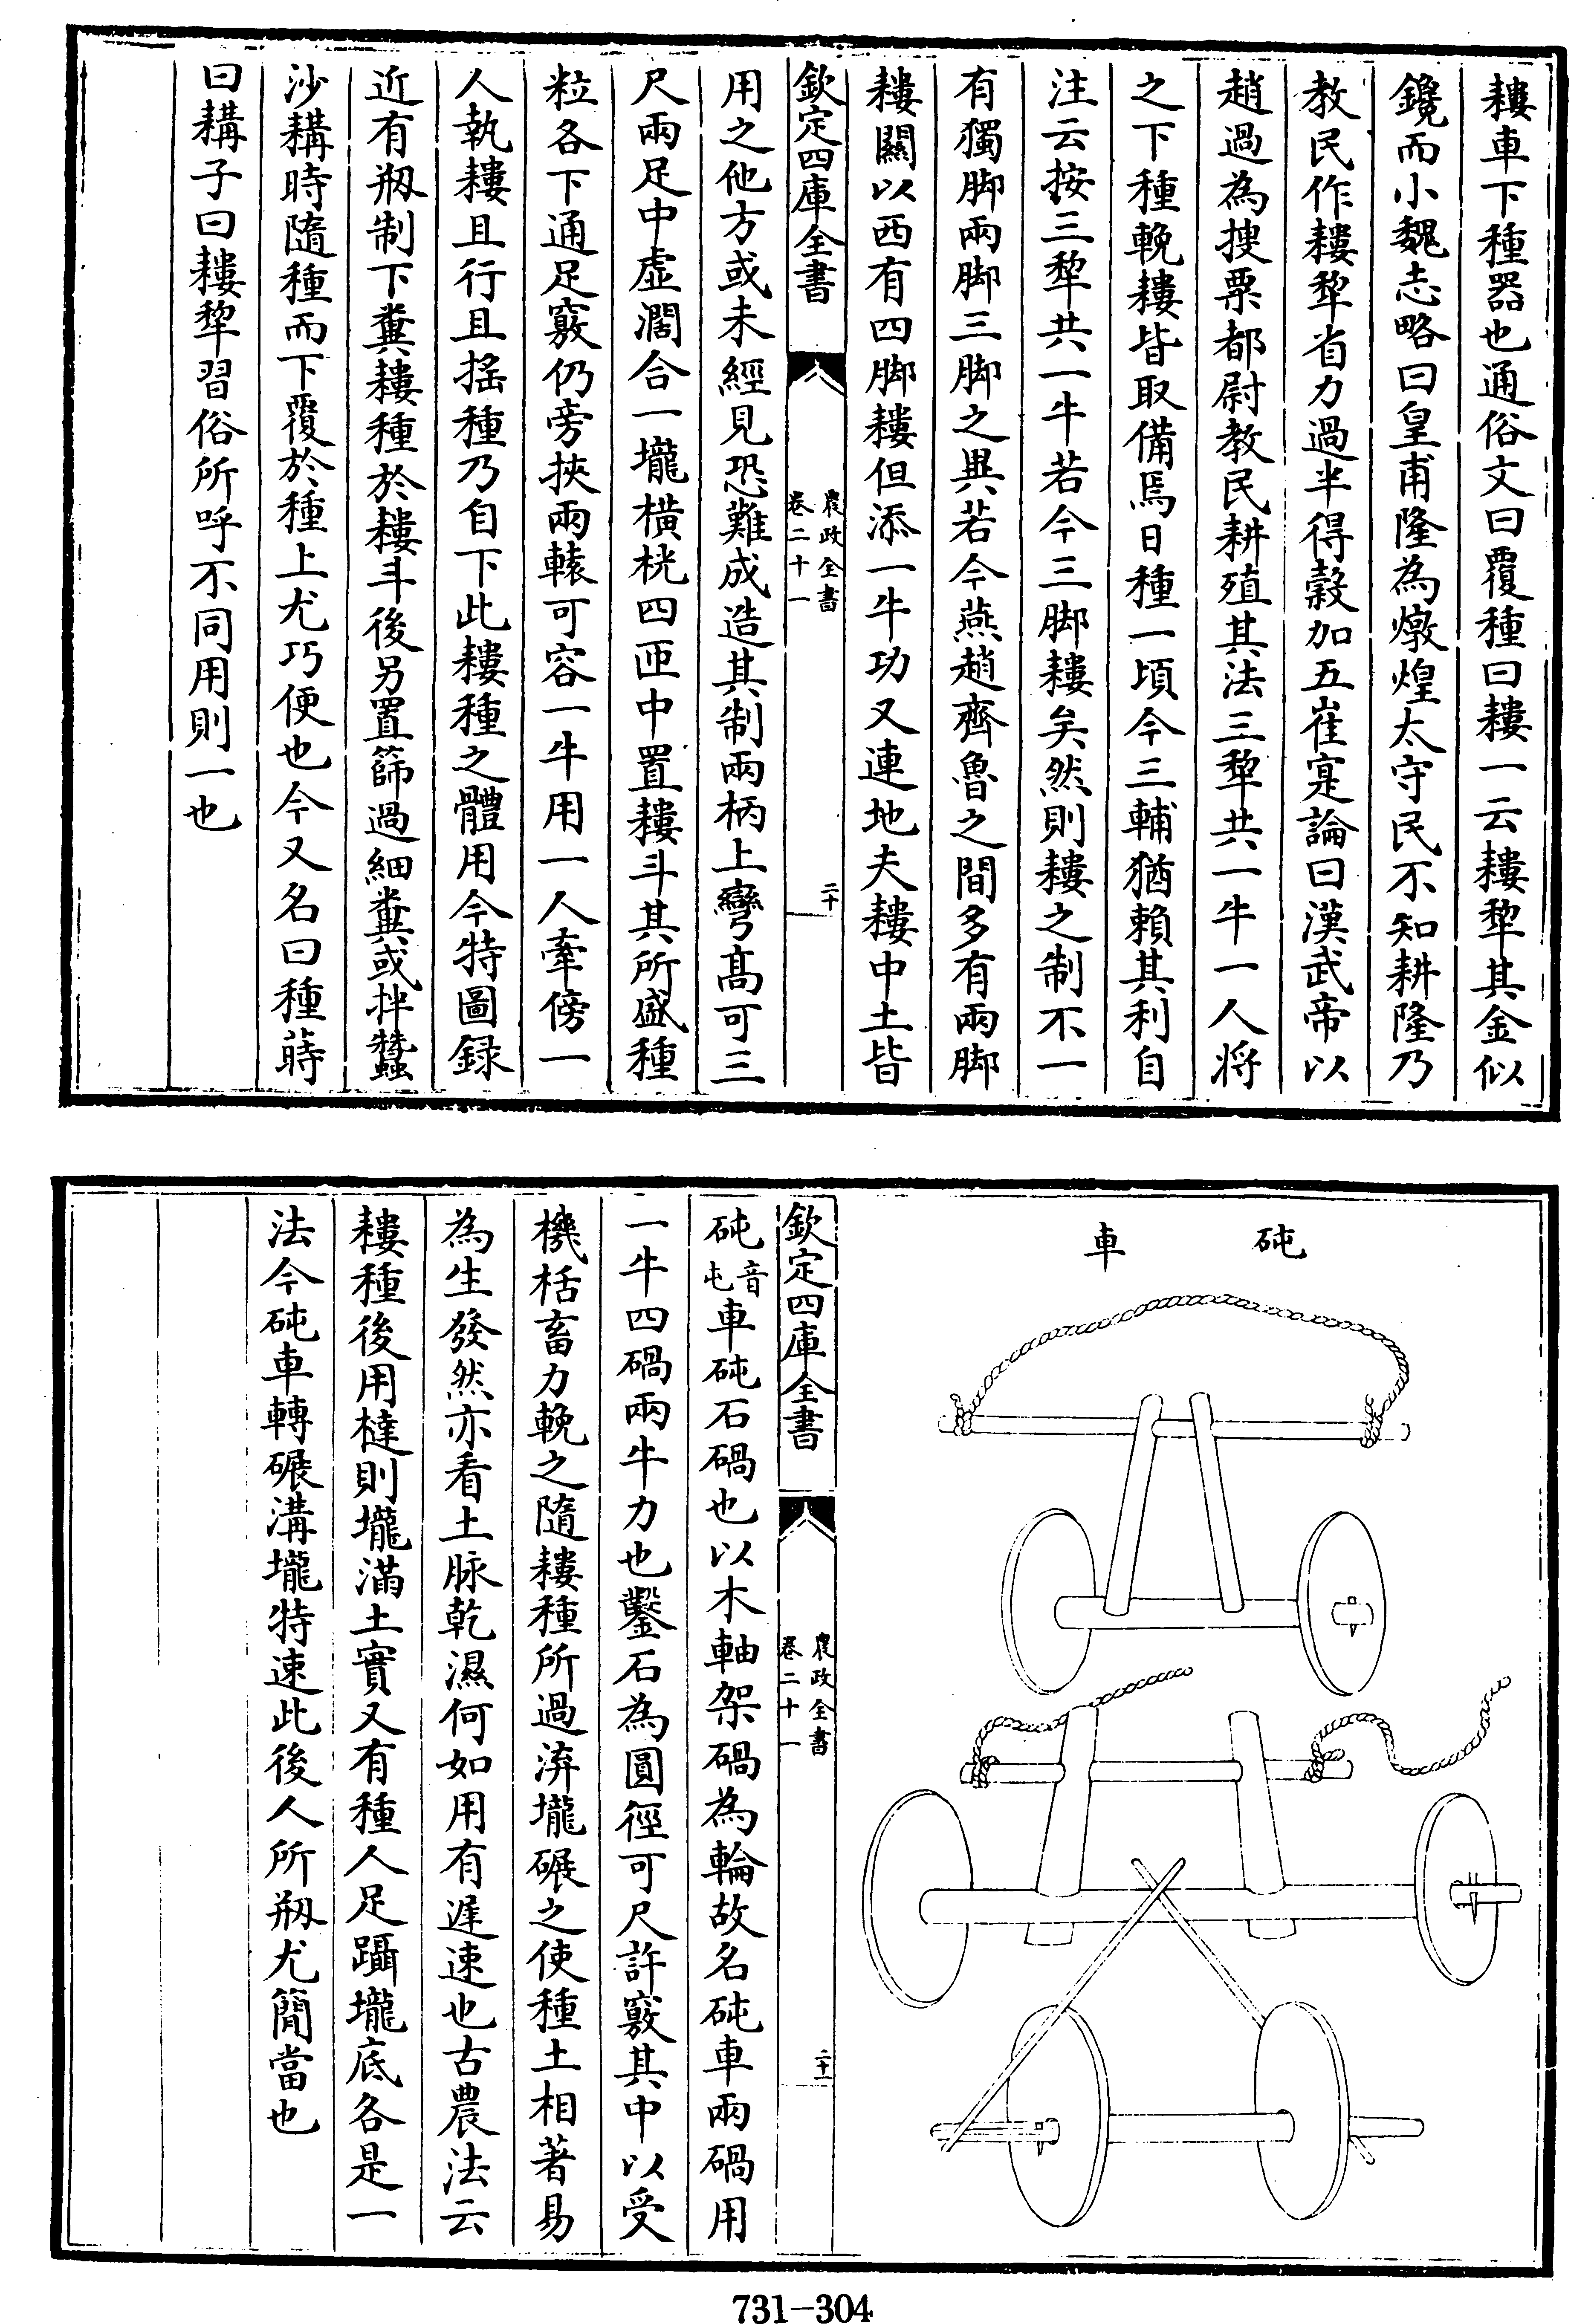 耬車下種器也通俗文曰覆種曰耬一云耬犂其金似
鑱而小魏志略曰皇甫隆為燉煌太守民不知耕隆乃
教民作耬犂省力過半得穀加五崔寔論曰漢武帝以
趙過為搜粟都尉教民耕殖其法三犂共一牛一人将
之下種輓耬皆取備焉日種一頃今三輔猶賴其利自
注云按三犂共一牛若今三脚耬矣然則耬之制不一
有獨脚兩脚三脚之異若今燕趙齊魯之間多有兩脚
耬關以西有四脚耬但添一牛功又連地夫耬中土皆
欽定四庫全書
農政全書
卷二十一
二十
用之他方或未經見恐難成造其制兩柄上彎髙可三
尺兩足中虚濶合一壠橫桄四匝中置耬斗其所盛種
粒各下通足竅仍旁挾兩轅可容一牛用一人牽傍一
人執耬且行且揺種乃自下此耬種之體用今特圖録
近有剏制下糞耬種於耬斗後另置篩過細糞或拌蠶
沙耩時隨種而下覆於種上尤巧便也今又名曰種蒔
曰耩子曰耬犂習俗所呼不同用則一也
砘車
欽定四庫全書
農政全書
卷二十一
二十一
砘音屯車砘石碢也以木軸架碢為輪故名砘車兩碢用
一牛四碢兩牛力也鑿石為圓徑可尺許竅其中以受
機栝畜力輓之隨耬種所過溝壠碾之使種土相著易
為生發然亦看土脉乾濕何如用有遲速也古農法云
耬種後用撻則壠滿土實又有種人足躡壠底各是一
法今砘車轉碾溝壠特速此後人所剏尤簡當也
731-304